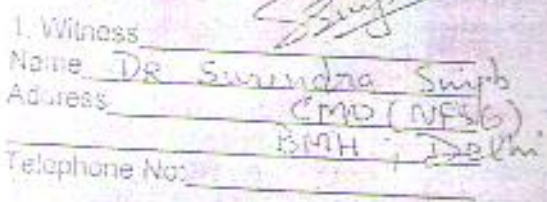 1. Witness
Name DR Surendra Singh
Address CMO (NFSG)
BMH, Delhi
Telephone No: